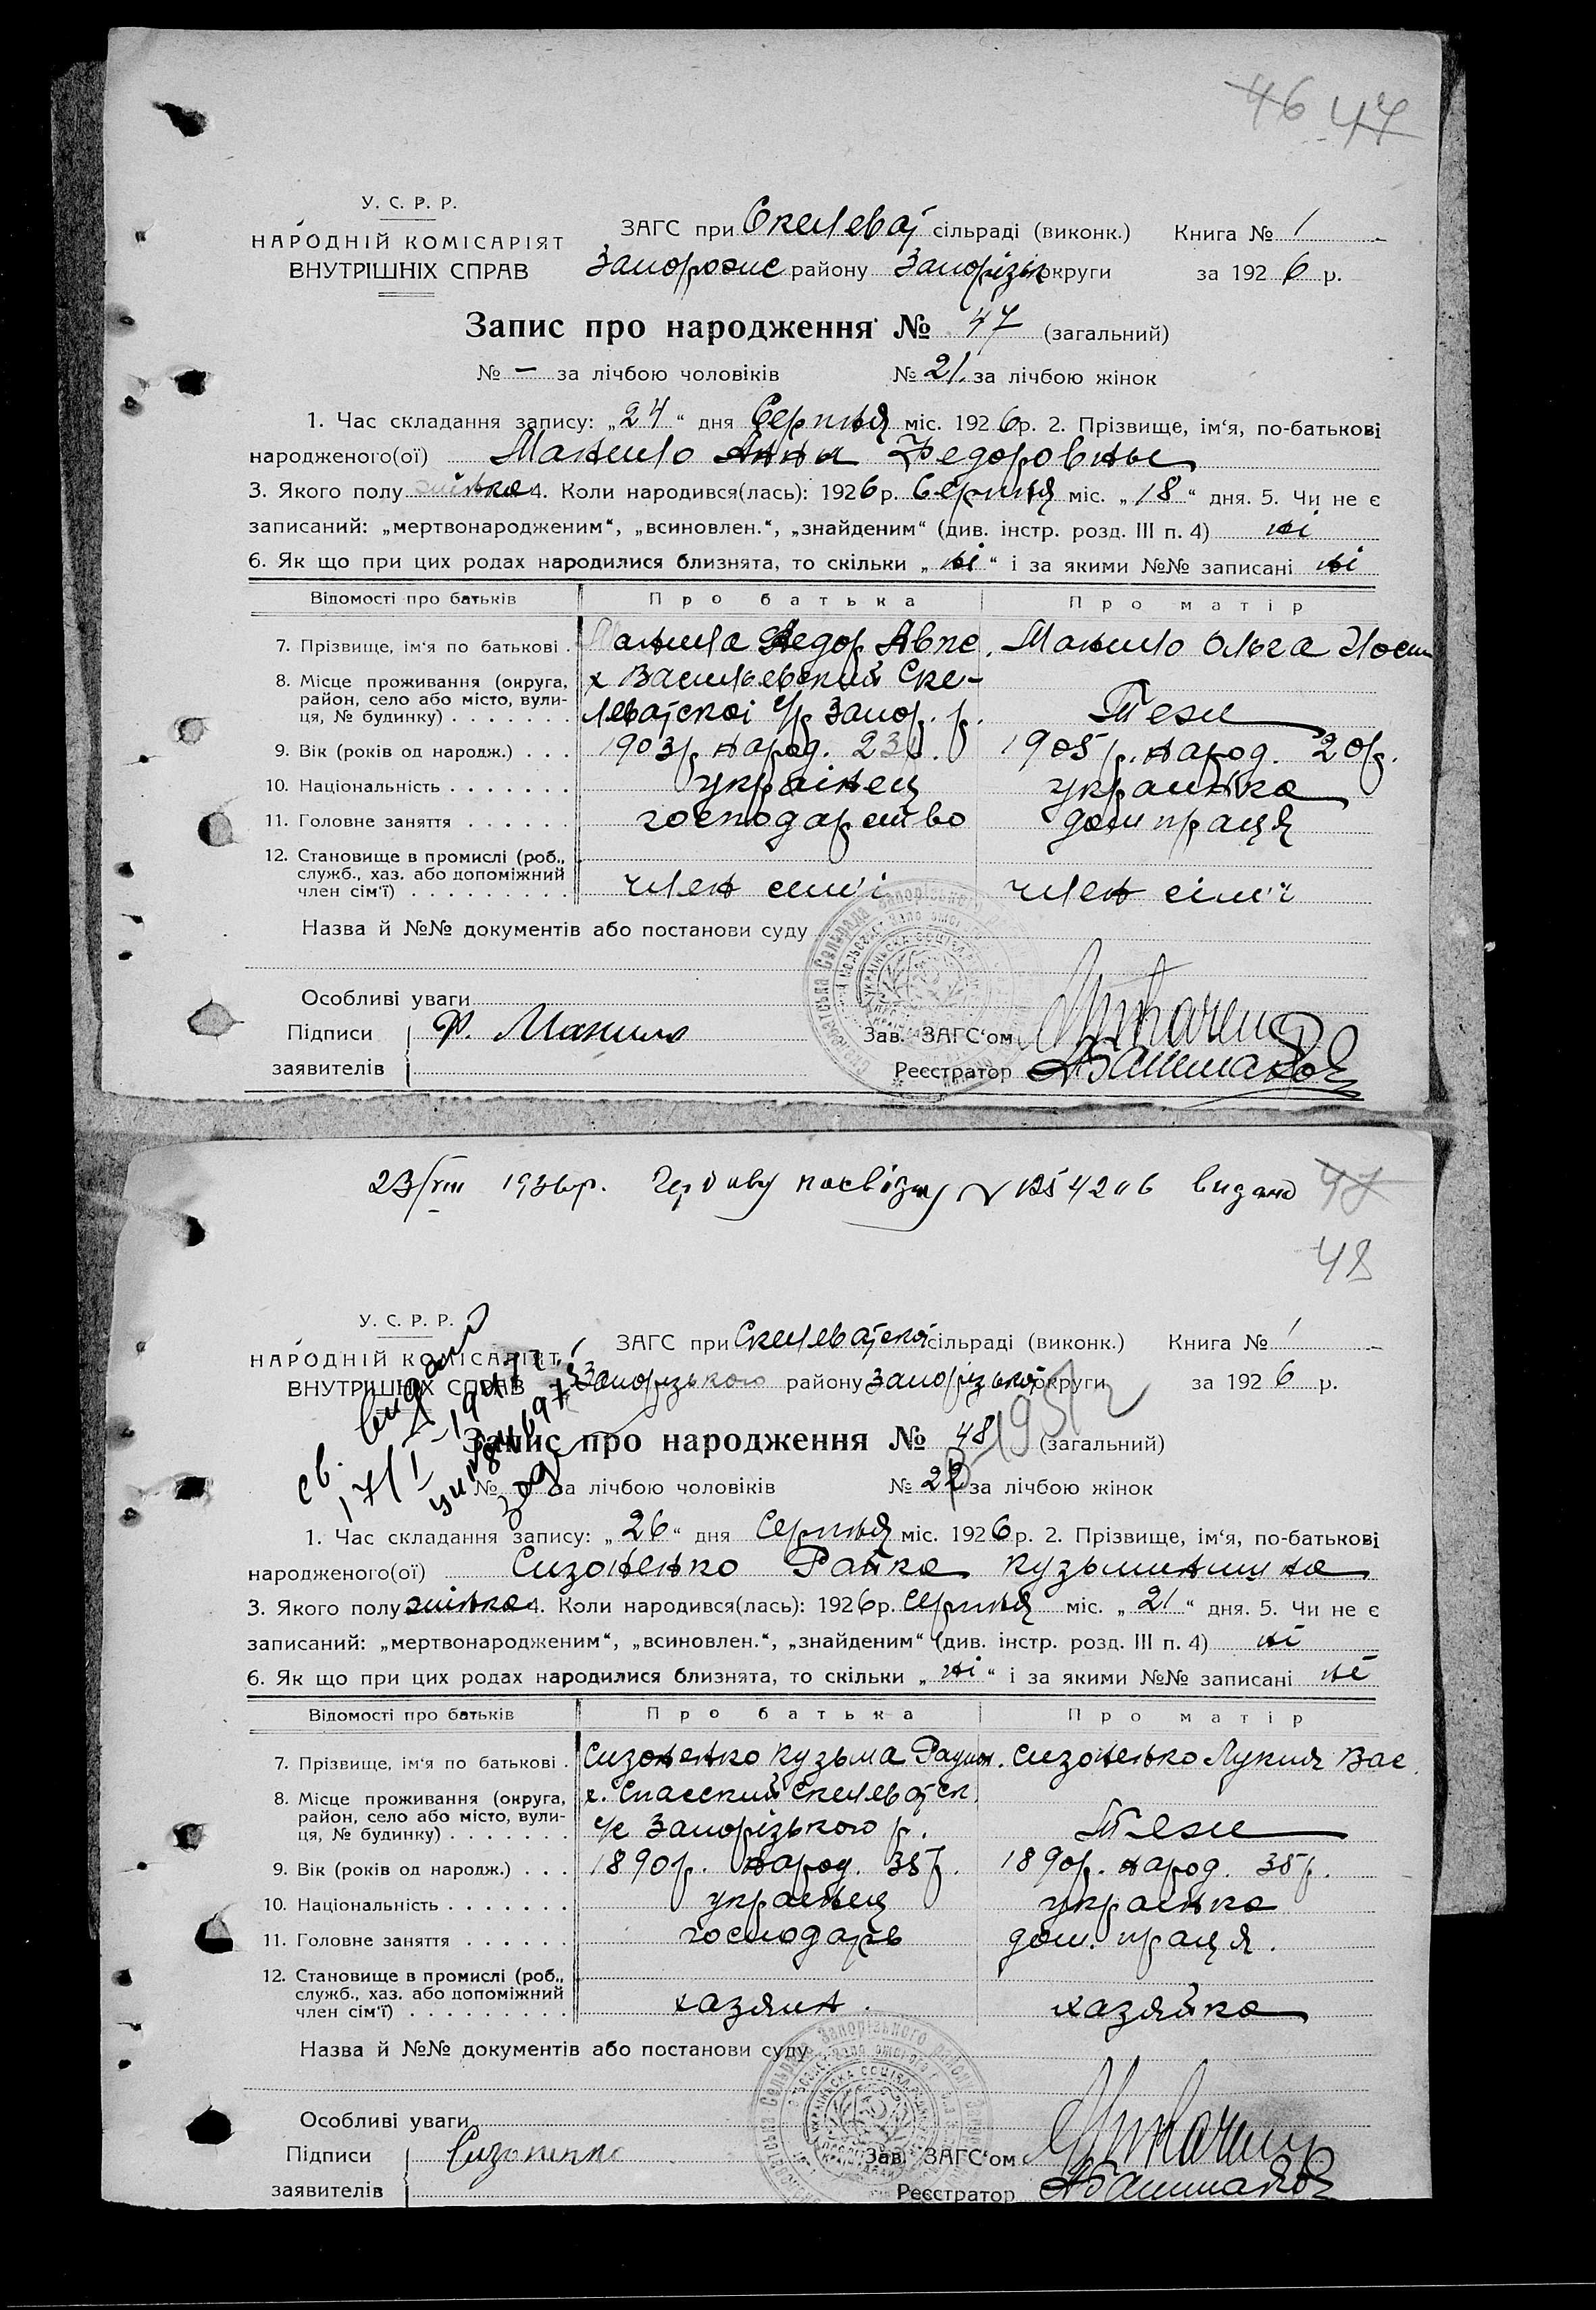 46 47
У. С. Р. Р.
НАРОДНІЙ КОМІСАРІЯТ
ВНУТРІШНІХ СПРАВ
ЗАГС при Скелеват сільраді (виконк.) Книга № 1
Запорожс району Запорізьк округи за 1926 р.
Запис про народження № 47 (загальний)
№ – за лічбою чоловіків № 21. за лічбою жінок
1. Час складання запису: „24“ дня Серпня міс. 1926р. 2. Прізвище, ім‘я, по-батькові
народженого(ої) Манило Анна Федоровны
3. Якого полу жінка 4. Коли народився(лась): 1926р. Серпня міс. „18“ дня. 5. Чи не є
записаний: „мертвонародженим“, „всиновлен.“, „знайденим“ (див. інстр. розд. III п. 4) ні
6. Як що при цих родах народилися близнята, то скільки „ні“ і за якими №№ записані ні
Відомості про батьків Про батька Про матір
7. Прізвище, ім‘я по батькові . Манила Федор Авкс. Манило Ольга Иосип
8. Місце проживання (округа, район, село або місто, вулиця, № будинку) . . . . . . . х Васильевский Ске-
леватскоі с/р Запор. р. Теж
9. Вік (років од народж.) . . . 1903р. народ. 23р. 1905р. народ. 20р.
10. Національність . . . . . . . українец украинка
11. Головне заняття . . . . . . господарство дом праця
12. Становище в промислі (роб., служб., хаз. або допоміжний член сім‘ї) . . . . . . . . . член сим'і член сім'ї
Назва й №№ документів або постанови суду
Особливі уваги
Підписи Ф. Манило Зав. ЗАГС‘ом
заявителів Реєстратор
23/VIII 1936р. видано 47
48
У. С. Р. Р.
НАРОДНІЙ КОМІСАРІЯТ
ВНУТРІШНІХ СПРАВ
св. видано
17/I–1947
ЗАГС при Скелеватской сільраді (виконк.) Книга № 1
Запорізького району Запорізькой округи за 1926 р.
Запис про народження № 48 (загальний)
№ за лічбою чоловіків № 22 за лічбою жінок
1. Час складання запису: „26“ дня Серпня міс. 1926р. 2. Прізвище, ім‘я, по-батькові
народженого(ої) Сизоненко Райка Кузьминишна
3. Якого полу жінка 4. Коли народився(лась): 1926р. Серпня міс. „21“ дня. 5. Чи не є
записаний: „мертвонародженим“, „всиновлен.“, „знайденим“ (див. інстр. розд. III п. 4) ні
6. Як що при цих родах народилися близнята, то скільки „ні“ і за якими №№ записані ні
Відомості про батьків Про батька Про матір
7. Прізвище, ім‘я по батькові . Сизоненко Кузьма Радион. Сизоненко Лукия Вас.
8. Місце проживання (округа, район, село або місто, вулиця, № будинку) . . . . . . . х. Спасский Скелеватск.
с/с Запорізького р. Теж
9. Вік (років од народж.) . . . 1890р. народ. 35р. 1890р. народ. 35р.
10. Національність . . . . . . . украінец украінка
11. Головне заняття . . . . . . господарь дом. праця.
12. Становище в промислі (роб., служб., хаз. або допоміжний член сім‘ї) . . . . . . . . . хазяин. хазяйка
Назва й №№ документів або постанови суду
Особливі уваги
Підписи Сизоненко Зав. ЗАГС‘ом
заявителів Реєстратор